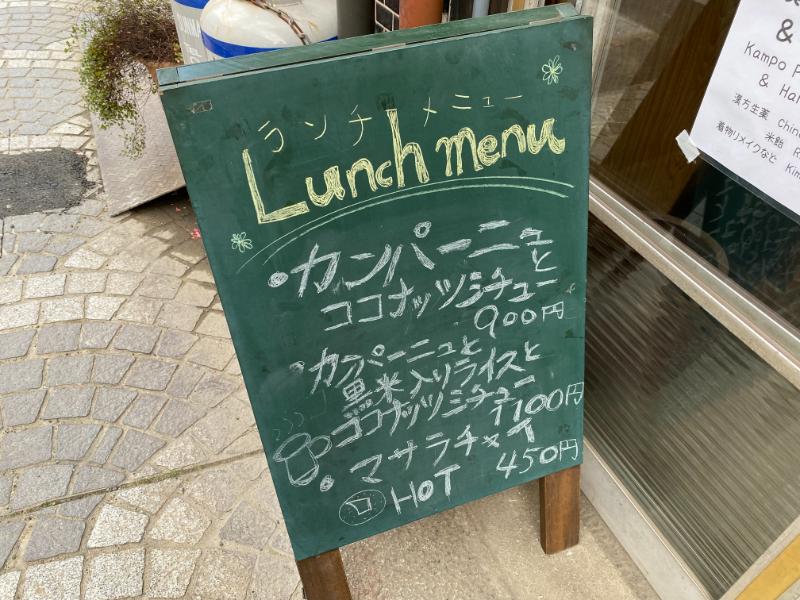 ランチ メニュー
Lunch menu
カンパーニュ
と
ココナッツシチュー
900円
カンパーニュと
黒米入りライスと
ココナッツシチュー
1100円
マサラチャイ
HOT 450円
&
Kampo P
& Hal
漢方生薬 Chin
米飴 R
着物リメイクなど Kim